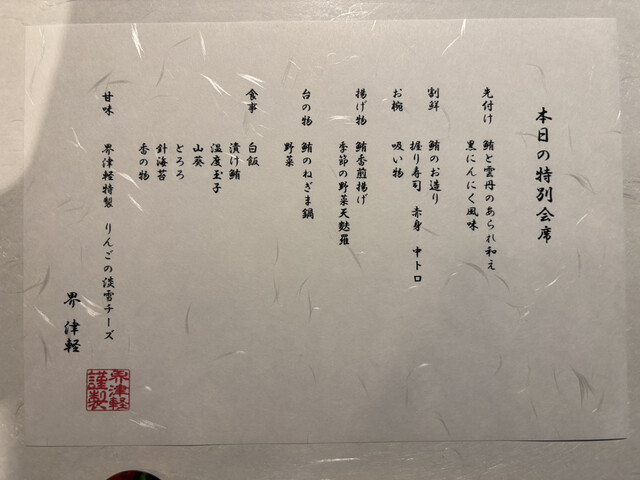 本日の特別会席
先付け 鮪と雲丹のあられ和え
黒にんにく風味
割鮮 鮪のお造り
握り寿司 赤身 中トロ
お椀 吸い物
揚げ物 鮪香煎揚げ
季節の野菜天麩羅
台の物 鮪のねぎま鍋
野菜
食事 白飯
漬け鮪
温度玉子
山葵
とろろ
針海苔
香の物
甘味 界津軽特製 りんごの淡雪チーズ
界 津軽
界津軽
謹製